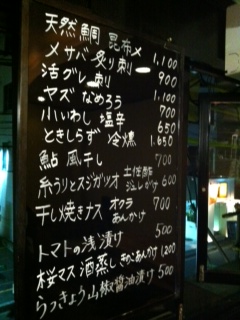 天然鯛 昆布〆 1,100
メサバ 炙り刺 900
活グレ 刺 1,100
ヤズ なめろう 700
小いわし 塩辛 650
ときしらず 冷燻 1,650
鮎 風干し 700
糸うりとスジガツオ 土佐酢ジュレがけ 600
干し焼きナス オクラあんかけ 700
トマトの浅漬け 500
桜マス 酒蒸し きのこあんかけ 1,200
らっきょう 山椒醤油漬け 500